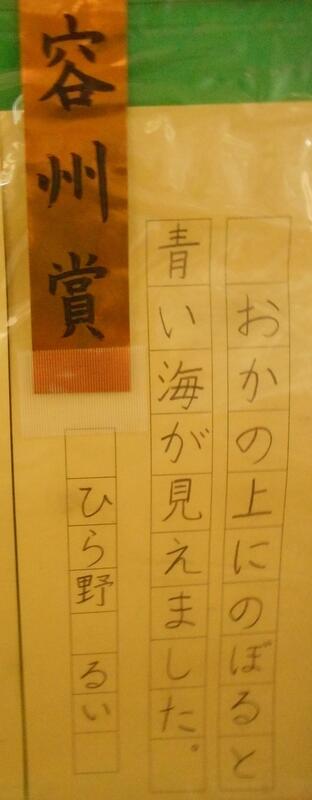 容州賞
おかの上にのぼると
青い海が見えました。
ひら野 るい